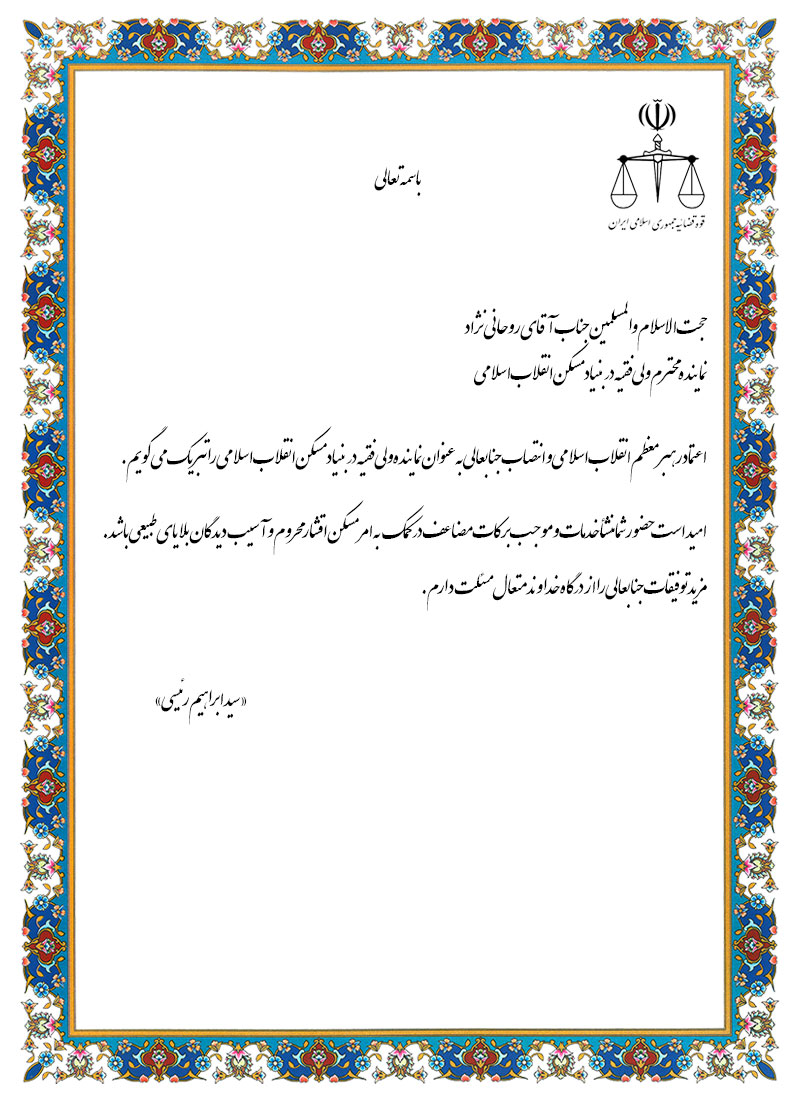 باسمه تعالی
قوه قضائیه جمهوری اسلامی ایران
حجت الاسلام والمسلمین جناب آقای روحانی نژاد
نماینده محترم ولی فقیه در بنیاد مسکن انقلاب اسلامی
اعتماد رهبر معظم انقلاب اسلامی و انتصاب جنابعالی به عنوان نماینده ولی فقیه در بنیاد مسکن انقلاب اسلامی را تبریک می گویم .
امید است حضور شما منشأ خدمات و موجب برکات مضاعف در کمک به امر مسکن اقشار محروم و آسیب دیدگان بلایای طبیعی باشد .
مزید توفیقات جنابعالی را از درگاه خداوند متعال مسئلت دارم .
«سید ابراهیم رئیسی»